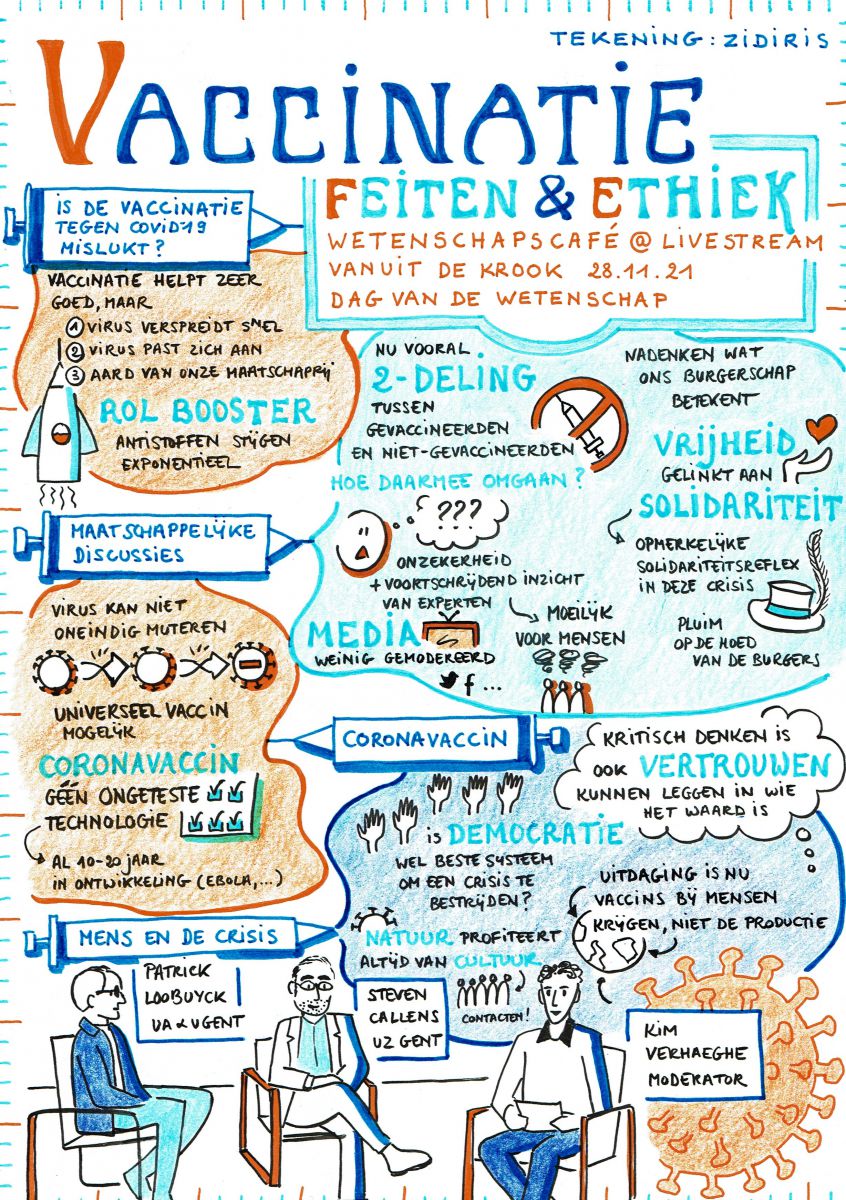 TEKENING: ZIDIRIS
VACCINATIE
FEITEN & ETHIEK
WETENSCHAPSCAFÉ @ LIVESTREAM
VANUIT DE KROOK 28.11.21
DAG VAN DE WETENSCHAP
IS DE VACCINATIE
TEGEN COVID19
MISLUKT?
VACCINATIE HELPT ZEER
GOED, MAAR
1 VIRUS VERSPREIDT SNEL
2 VIRUS PAST ZICH AAN
3 AARD VAN ONZE MAATSCHAPPIJ
ROL BOOSTER
ANTISTOFFEN STIJGEN
EXPONENTIEEL
MAATSCHAPPELIJKE
DISCUSSIES
NU VOORAL
2-DELING
TUSSEN
GEVACCINEERDEN
EN NIET-GEVACCINEERDEN
HOE DAARMEE OMGAAN?
???
ONZEKERHEID
+ VOORTSCHRIJDEND INZICHT
VAN EXPERTEN
MOEILIJK
VOOR MENSEN
MEDIA
WEINIG GEMODEREERD
f ...
NADENKEN WAT
ONS BURGERSCHAP
BETEKENT
VRIJHEID
GELINKT AAN
SOLIDARITEIT
OPMERKELIJKE
SOLIDARITEITSREFLEX
IN DEZE CRISIS
PLUIM
OP DE HOED
VAN DE BURGERS
CORONAVACCIN
VIRUS KAN NIET
ONEINDIG MUTEREN
UNIVERSEEL VACCIN
MOGELIJK
CORONAVACCIN
GÉÉN ONGETESTE
TECHNOLOGIE
AL 10-20 JAAR
IN ONTWIKKELING (EBOLA,...)
MENS EN DE CRISIS
KRITISCH DENKEN IS
OOK VERTROUWEN
KUNNEN LEGGEN IN WIE
HET WAARD IS
IS DEMOCRATIE
WEL BESTE SYSTEEM
OM EEN CRISIS TE
BESTRIJDEN?
UITDAGING IS NU
VACCINS BIJ MENSEN
KRIJGEN, NIET DE PRODUCTIE
NATUUR PROFITEERT
ALTIJD VAN CULTUUR
CONTACTEN!
PATRICK
LOOBUYCK
UA & UGENT
STEVEN
CALLENS
UZ GENT
KIM
VERHAEGHE
MODERATOR